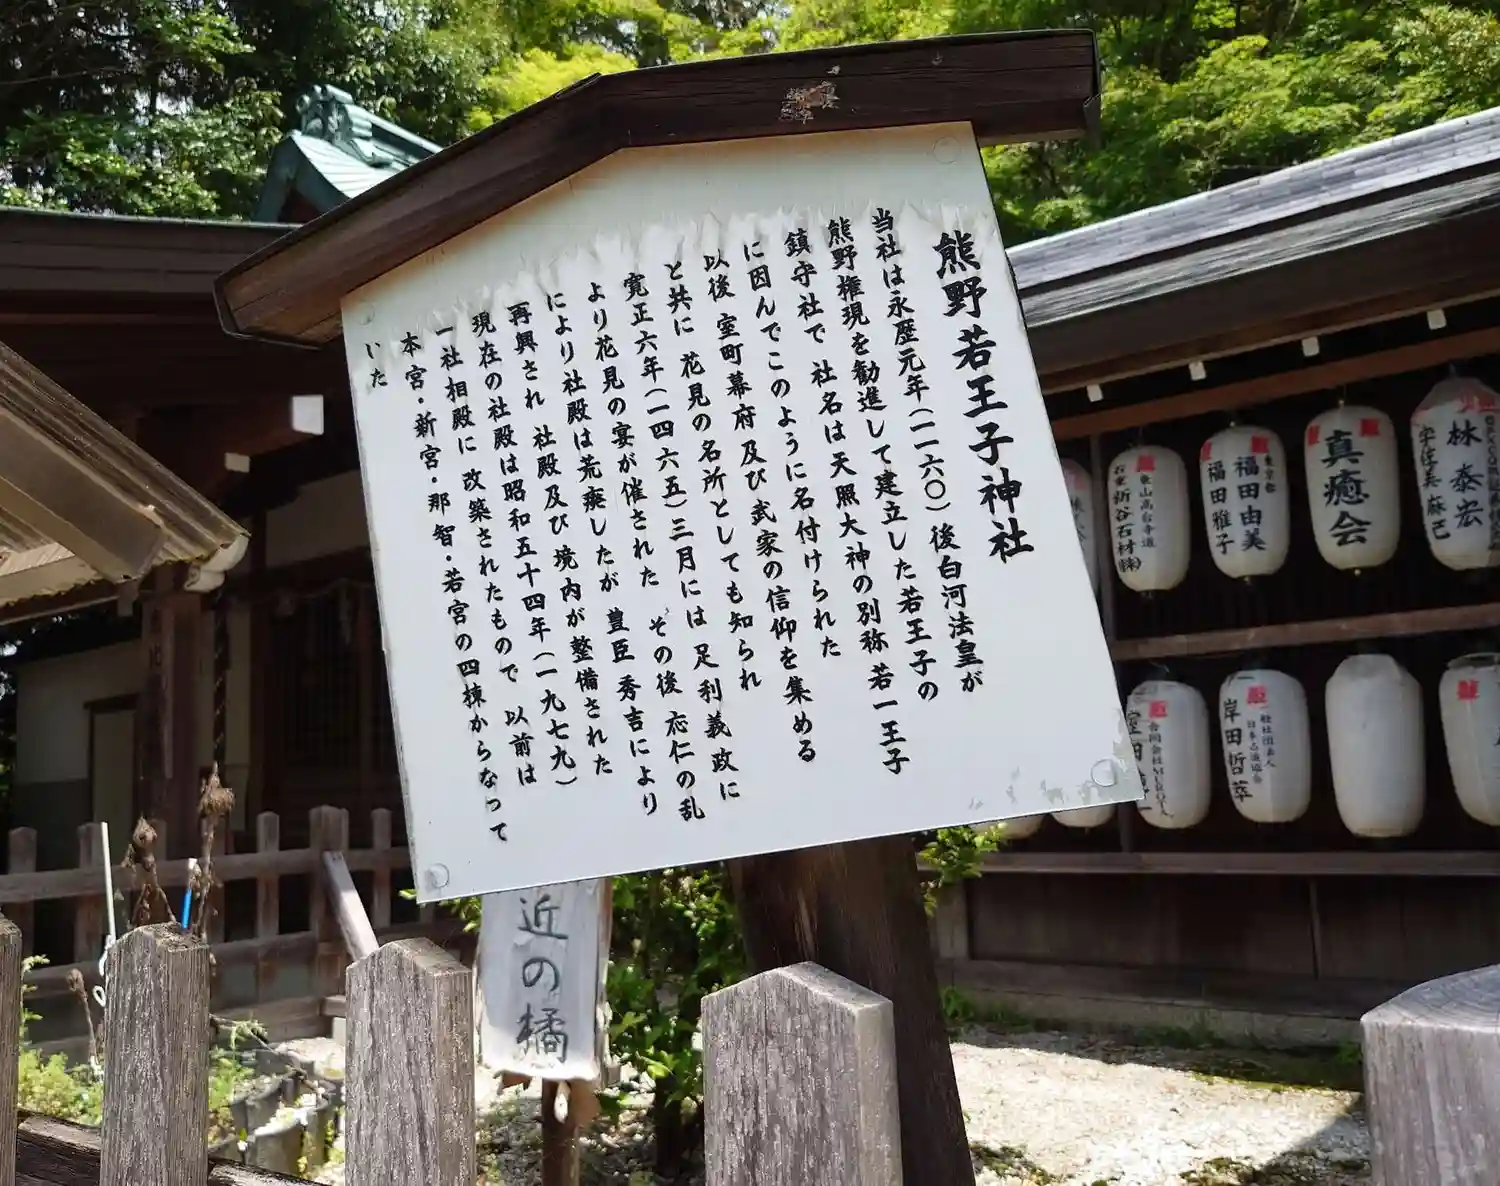 熊野若王子神社
当社は永歴元年(一一六〇)後白河法皇が
熊野権現を勧進して建立した若王子の
鎮守社で 社名は天照大神の別称 若一王子
に因んでこのように名付けられた
以後 室町幕府 及び 武家の信仰を集める
と共に 花見の名所としても知られ
寛正六年(一四六五)三月には 足利義政に
より花見の宴が催された その後 応仁の乱
により社殿は荒廃したが 豊臣秀吉により
再興され 社殿及び 境内が整備された
現在の社殿は昭和五十四年(一九七九)
一社相殿に 改築されたもので 以前は
本宮・新宮・那智・若宮の四棟からなって
いた
近の橘
林泰宏
宇佐美麻己
真癒会
東京都
福田由美
福田雅子
東山高台寺道
石業 折谷石材(株)
一般社団法人
岸田哲萃
合同会社MUROYA